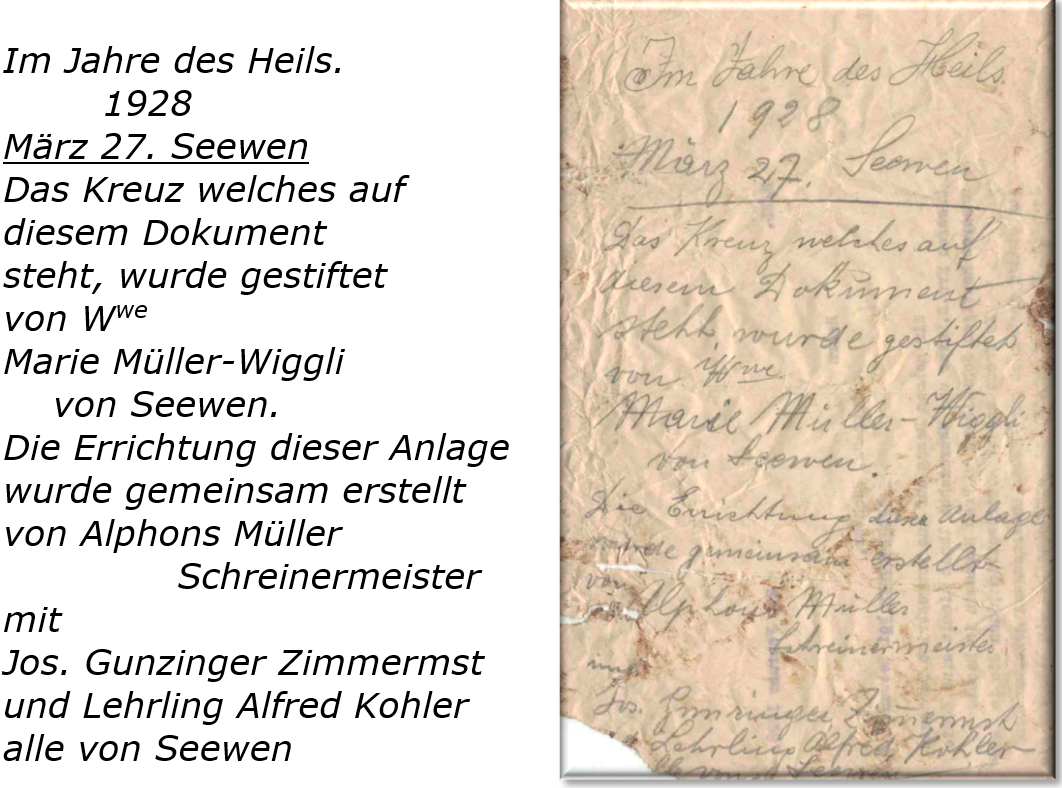 Im Jahre des Heils.
1928
März 27. Seewen
Das Kreuz welches auf
diesem Dokument
steht, wurde gestiftet
von Wwe
Marie Müller-Wiggli
von Seewen.
Die Errichtung dieser Anlage
wurde gemeinsam erstellt
von Alphons Müller
Schreinermeister
mit
Jos. Gunzinger Zimmermst
und Lehrling Alfred Kohler
alle von Seewen
Im Jahre des Heils.
1928
März 27. Seewen
Das Kreuz welches auf
diesem Dokument
steht, wurde gestiftet
von Wwe.
Marie Müller-Wiggli
von Seewen.
Die Errichtung dieser Anlage
wurde gemeinsam erstellt
von Alphons Müller
Schreinermeister
Jos. Gunzinger Zimmermst
Lehrling Alfred Kohler
von Seewen